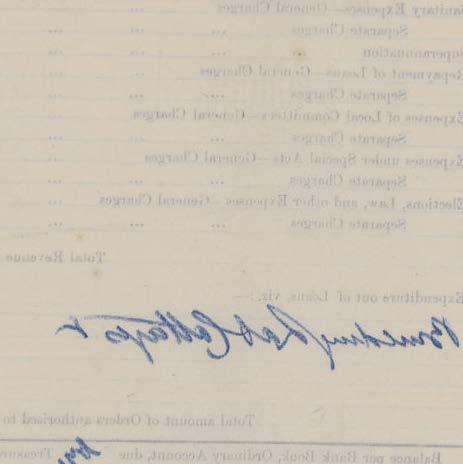 Sanitary Expenses—General Charges ... ...
Separate Charges ... ...
Superannuation ... ... ...
Repayment of Loans—General Charges ...
Separate Charges ... ...
Expenses of Local Committees—General Charges ...
Separate Charges ... ...
Expenses under Special Acts—General Charges ...
Separate Charges ... ...
Elections, Law, and other Expenses—General Charges ...
Separate Charges ... ...
Total Revenue
Expenditure out of Loans, viz.:—
Building Lab Cottages
Total amount of Orders authorised to
Balance per Bank Book, Ordinary Account, due by Treasurer